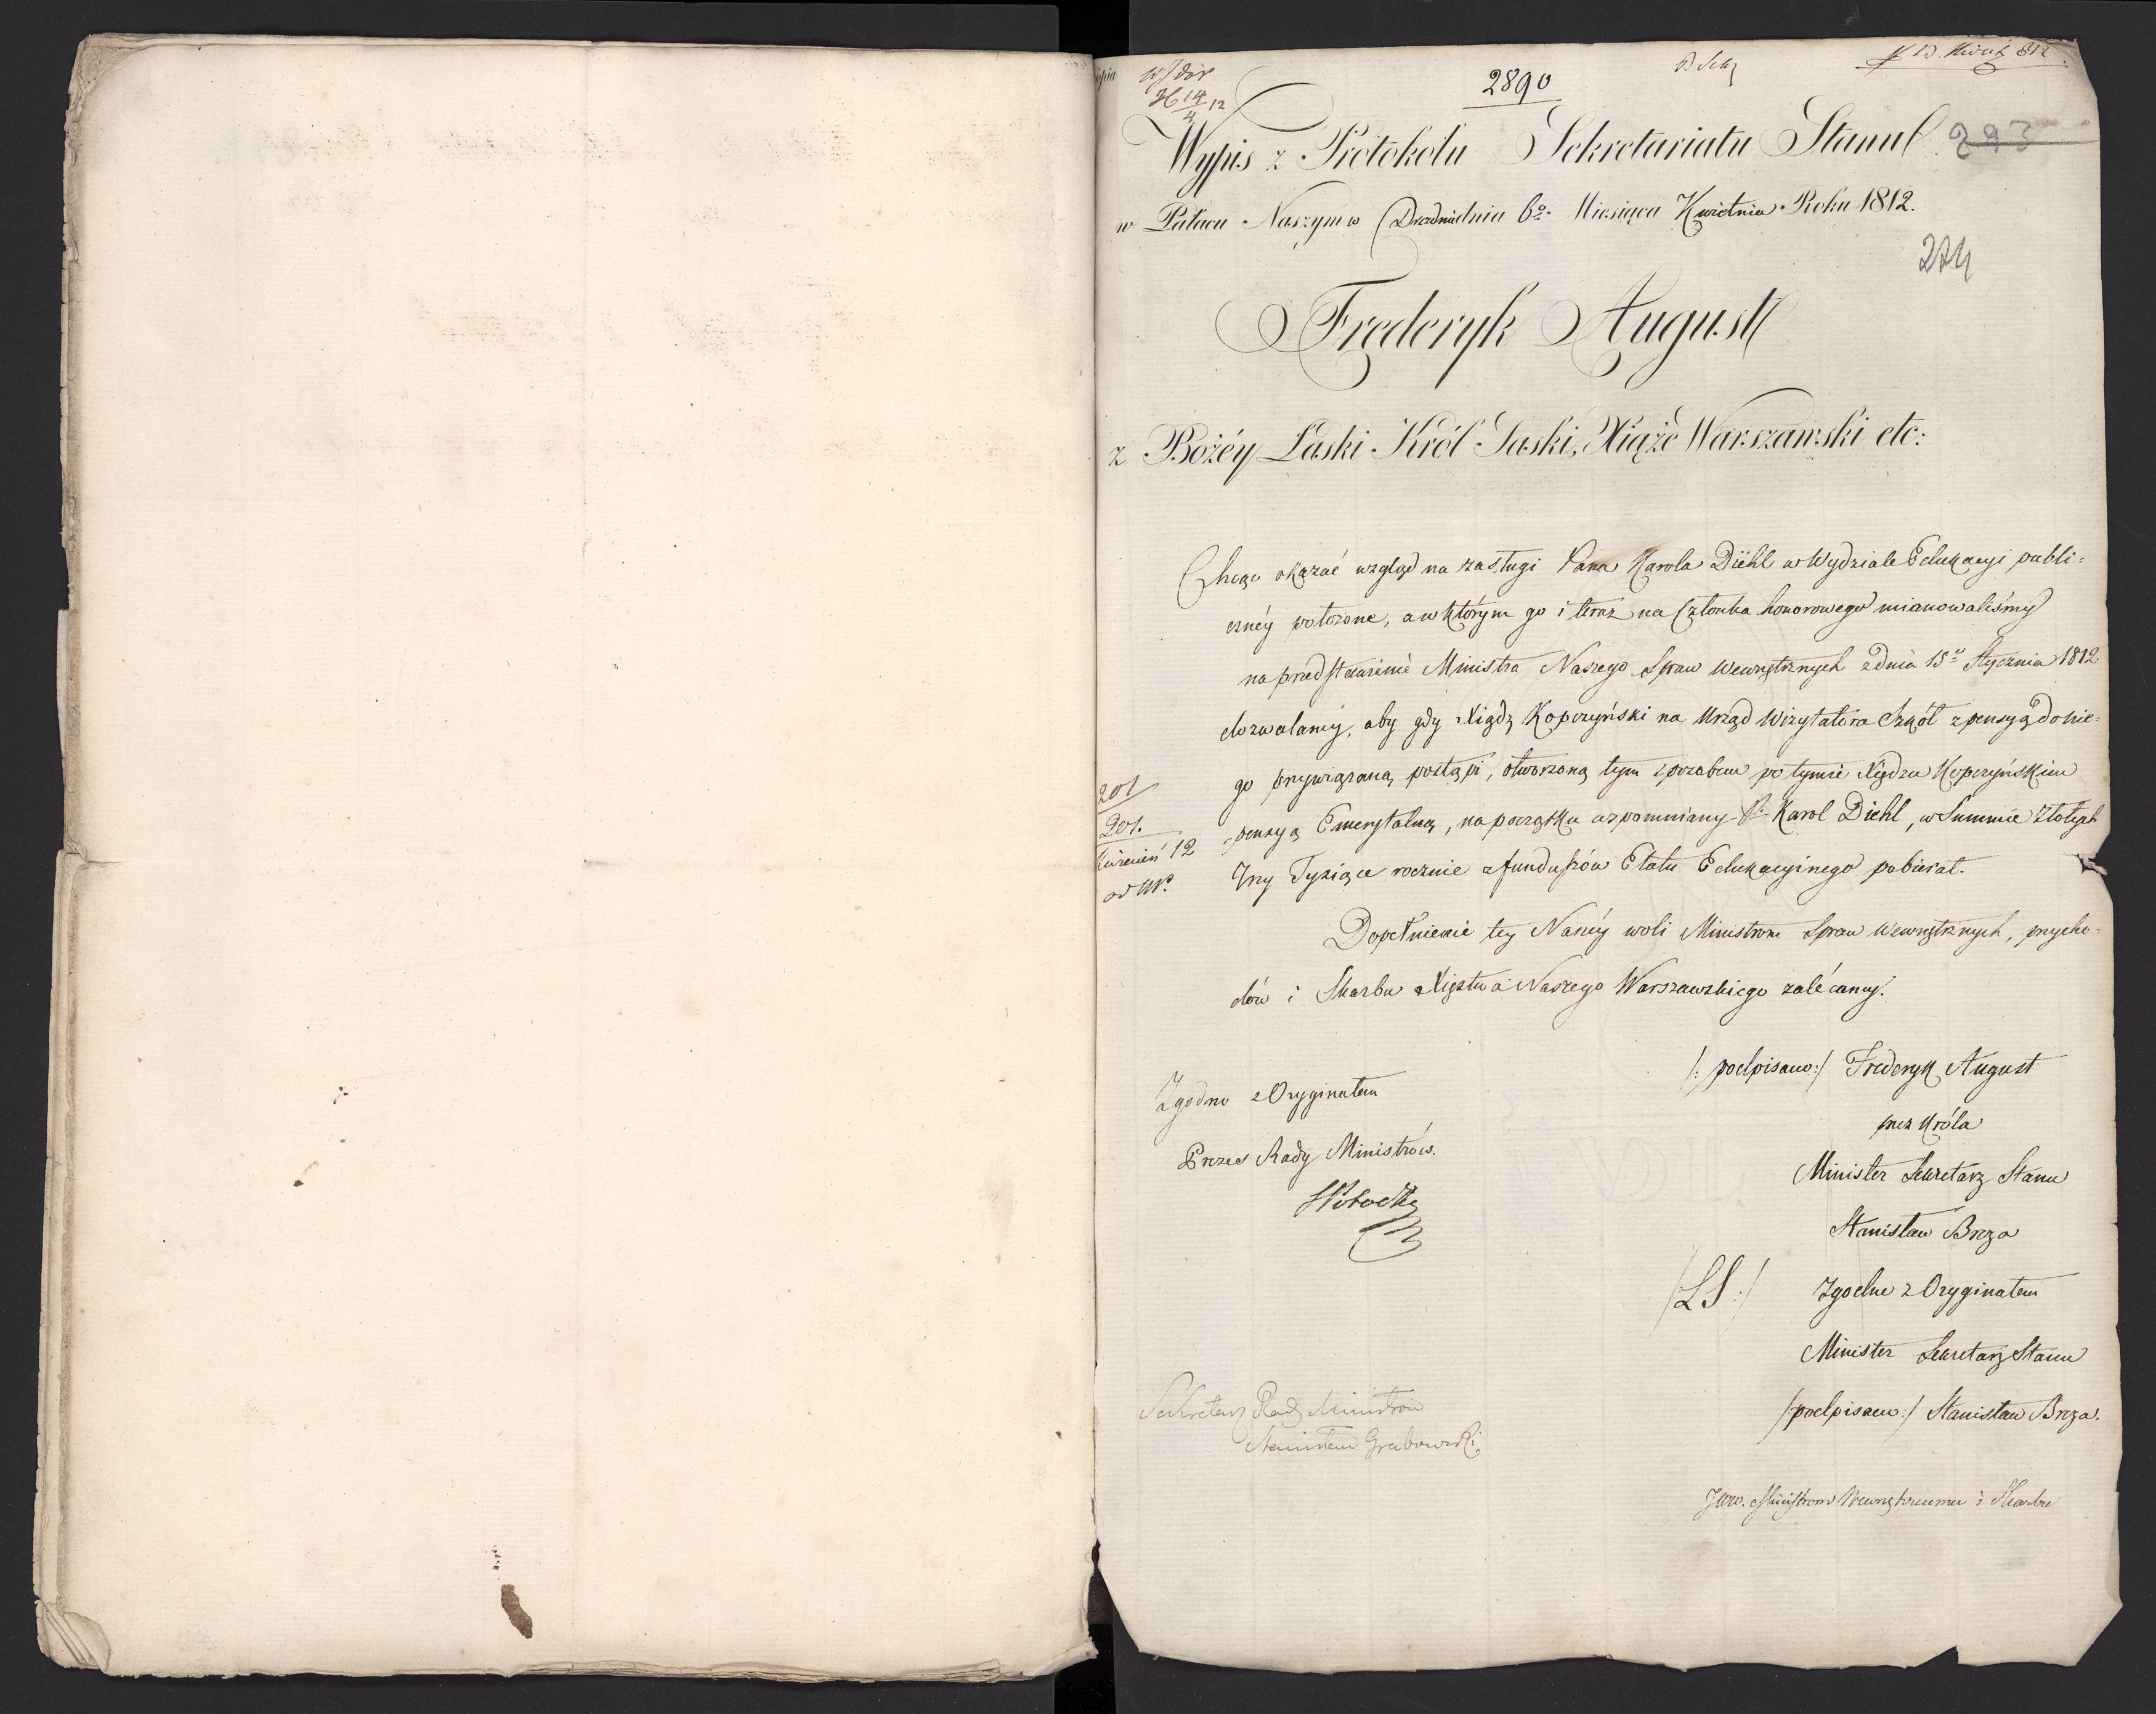 2890
293
Wypis z Protokolu Sekretariatu Stanu
w Pałacu Naszym w Dreźnie dnia 6o. Miesiąca Kwietnia Roku 1812.
274
Frederyk August
z Bożéy Łaski Król Saski, Xiąże Warszawski etc:
Chcąc okazać wzgląd na zasługi Pana Karola Diehl w Wydziale Edukacyi publi=
cznéy położone, a w którym go i teraz na Członka honorowego mianowaliśmy
na przedstawienie Ministra Naszego Spraw Wewnętrznych z dnia 15o Stycznia 1812
dozwalamy, aby gdy Xiądz Kopczyński na Urząd Wizytatora Szkół z pensyą do nie=
go przywiązaną postąpi, otworzoną tym sposobem po tymże Xiędzu Kopczyńskim
pensyą Emerytalną, na początku wspomniany P. Karol Diehl, w Summie Złotych
Trzy Tysiące rocznie z funduszów Etatu Edukacyinego pobierał.
201
201.
Kwiecień 12
Dopełnienie tey Naszéy woli Ministrom Spraw Wewnętrznych, przycho=
dów i Skarbu Xięstwa Naszego Warszawskiego zalécamy.
/: podpisano :/ Frederyk August
przez Króla
Minister Sekretarz Stanu
Stanisław Breza
/LS:/ Zgodno z Oryginałem
Minister Sekretarz Stanu
/podpisano:/ Stanisław Breza.
Zgodno z Oryginałem
Prezes Rady Ministrów.
Sekretarz Rady Ministrów
Stanisław Grabowski
JWW. Ministrom Wewnętrznemu i Skarbu